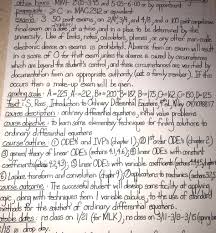 office hours: MWF 2:00-3:30 and 5:15-6:00 or by appointment
prerequisite: 2-C in MAC2312 or equivalent
exams: 3 50 point exams, on 2/4, 3/4, and 4/8, and a 100 point comprehensive
final exam on a date, at a time, and in a place to be determined by the
university. Use of books, notes, calculators, phones, or any other non-medic
electronic device on exams is prohibited. Absence from an exam will result
in a score of 0 for that exam unless the absence is caused by circumstances
which are beyond the student's control, and these circumstances are verified by
documentation from an appropriate authority (not a family member). If this
occurs then a make-up exam will be given.
grading scale: A=225, A-=212, B+=200, B=187, B-=175, C+=162, C=150, D=125
text: S. Ross, Introduction to Ordinary Differential Equations, 4th ed., Wiley
course description: ordinary differential equations, initial value problems
course objective: to learn some elementary techniques for finding solutions to
ordinary differential equations
course outline: ① ODE's and IVP's (chapter 1); ② 1st order ODEs (chapter 2)
③ general theory of linear ODEs (sections 4.1, 4.6); ④ linear ODEs with constant
coefficients; ⑤ linear ODEs with variable coefficients
⑥ Laplace transform and convolution (chapter 9); ⑦ applications to mechanics
course outcome: The successful student will develop some facility of applying
logic, along with techniques from 1 variable calculus, to the use of standard
methods for the solution of ordinary differential equations.
notable dates: no class on 1/21 (for MLK), no class on 3/11-3/13-3/15 (spring
3/18 is drop day.